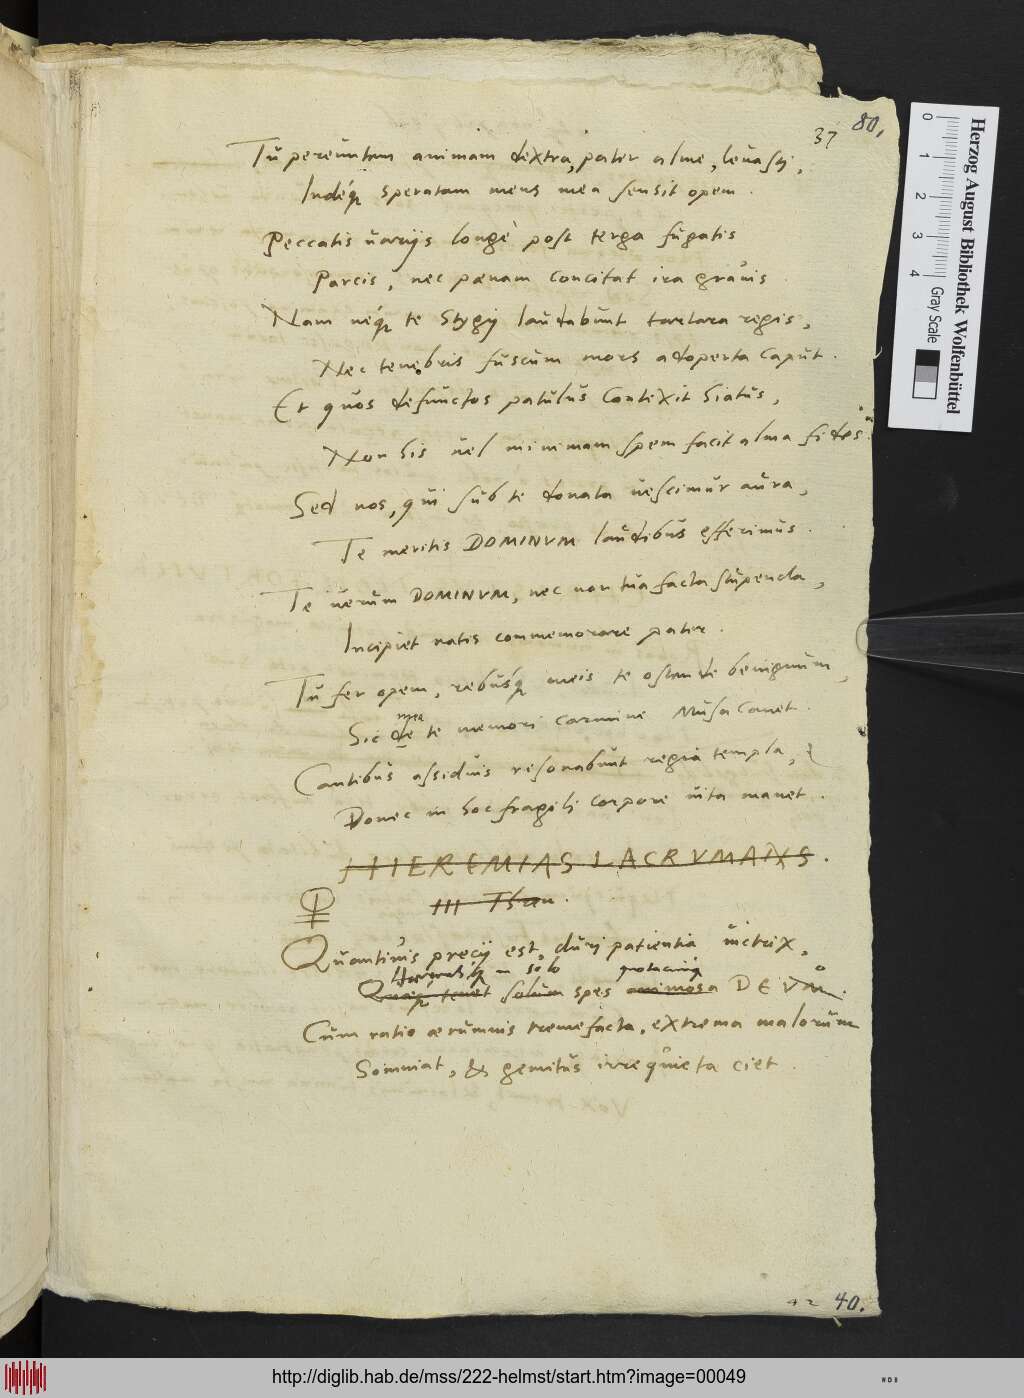 37 80.
Tu pereuntem animam dextra, pater alme, leuasti,
Indéq; speratam mens mea sensit opem.
Peccatis uarijs longè post terga fugatis
Parcis, nec pœnam concitat ira grauis
Nam neq; te Stygij laudabunt tartara regis,
Nec tenebris fuscum mors adoperta caput.
Et quos defunctos patulus contexit hiatus,
Non his uel minimam spem facit alma fides.
Sed nos, qui sub te donata uescimur aura,
Te meritis DOMINVM laudibus efferimus.
Te uerum DOMINVM, nec non tua facta stupenda,
Incipiet natis commemorare pater.
Tu fer opem, rebusq; meis te ostende benignum,
mea
Sic de te memori carmine Musa canet.
Cantibus assiduis resonabunt regia templa,
Donec in hoc fragili corpore uita manet.
HIEREMIAS LACRVMANS.
III Thren.
Quantiuis precij est, duri patientia uictrix,
in solo
solum spes animosa DEVM.
Cum ratio ærumnis tremefacta, extrema malorum
Somniat, & gemitus irrequieta ciet.
42 40.
Herzog August Bibliothek Wolfenbüttel
0 1 2 3 4 Gray Scale
http://diglib.hab.de/mss/222-helmst/start.htm?image=00049